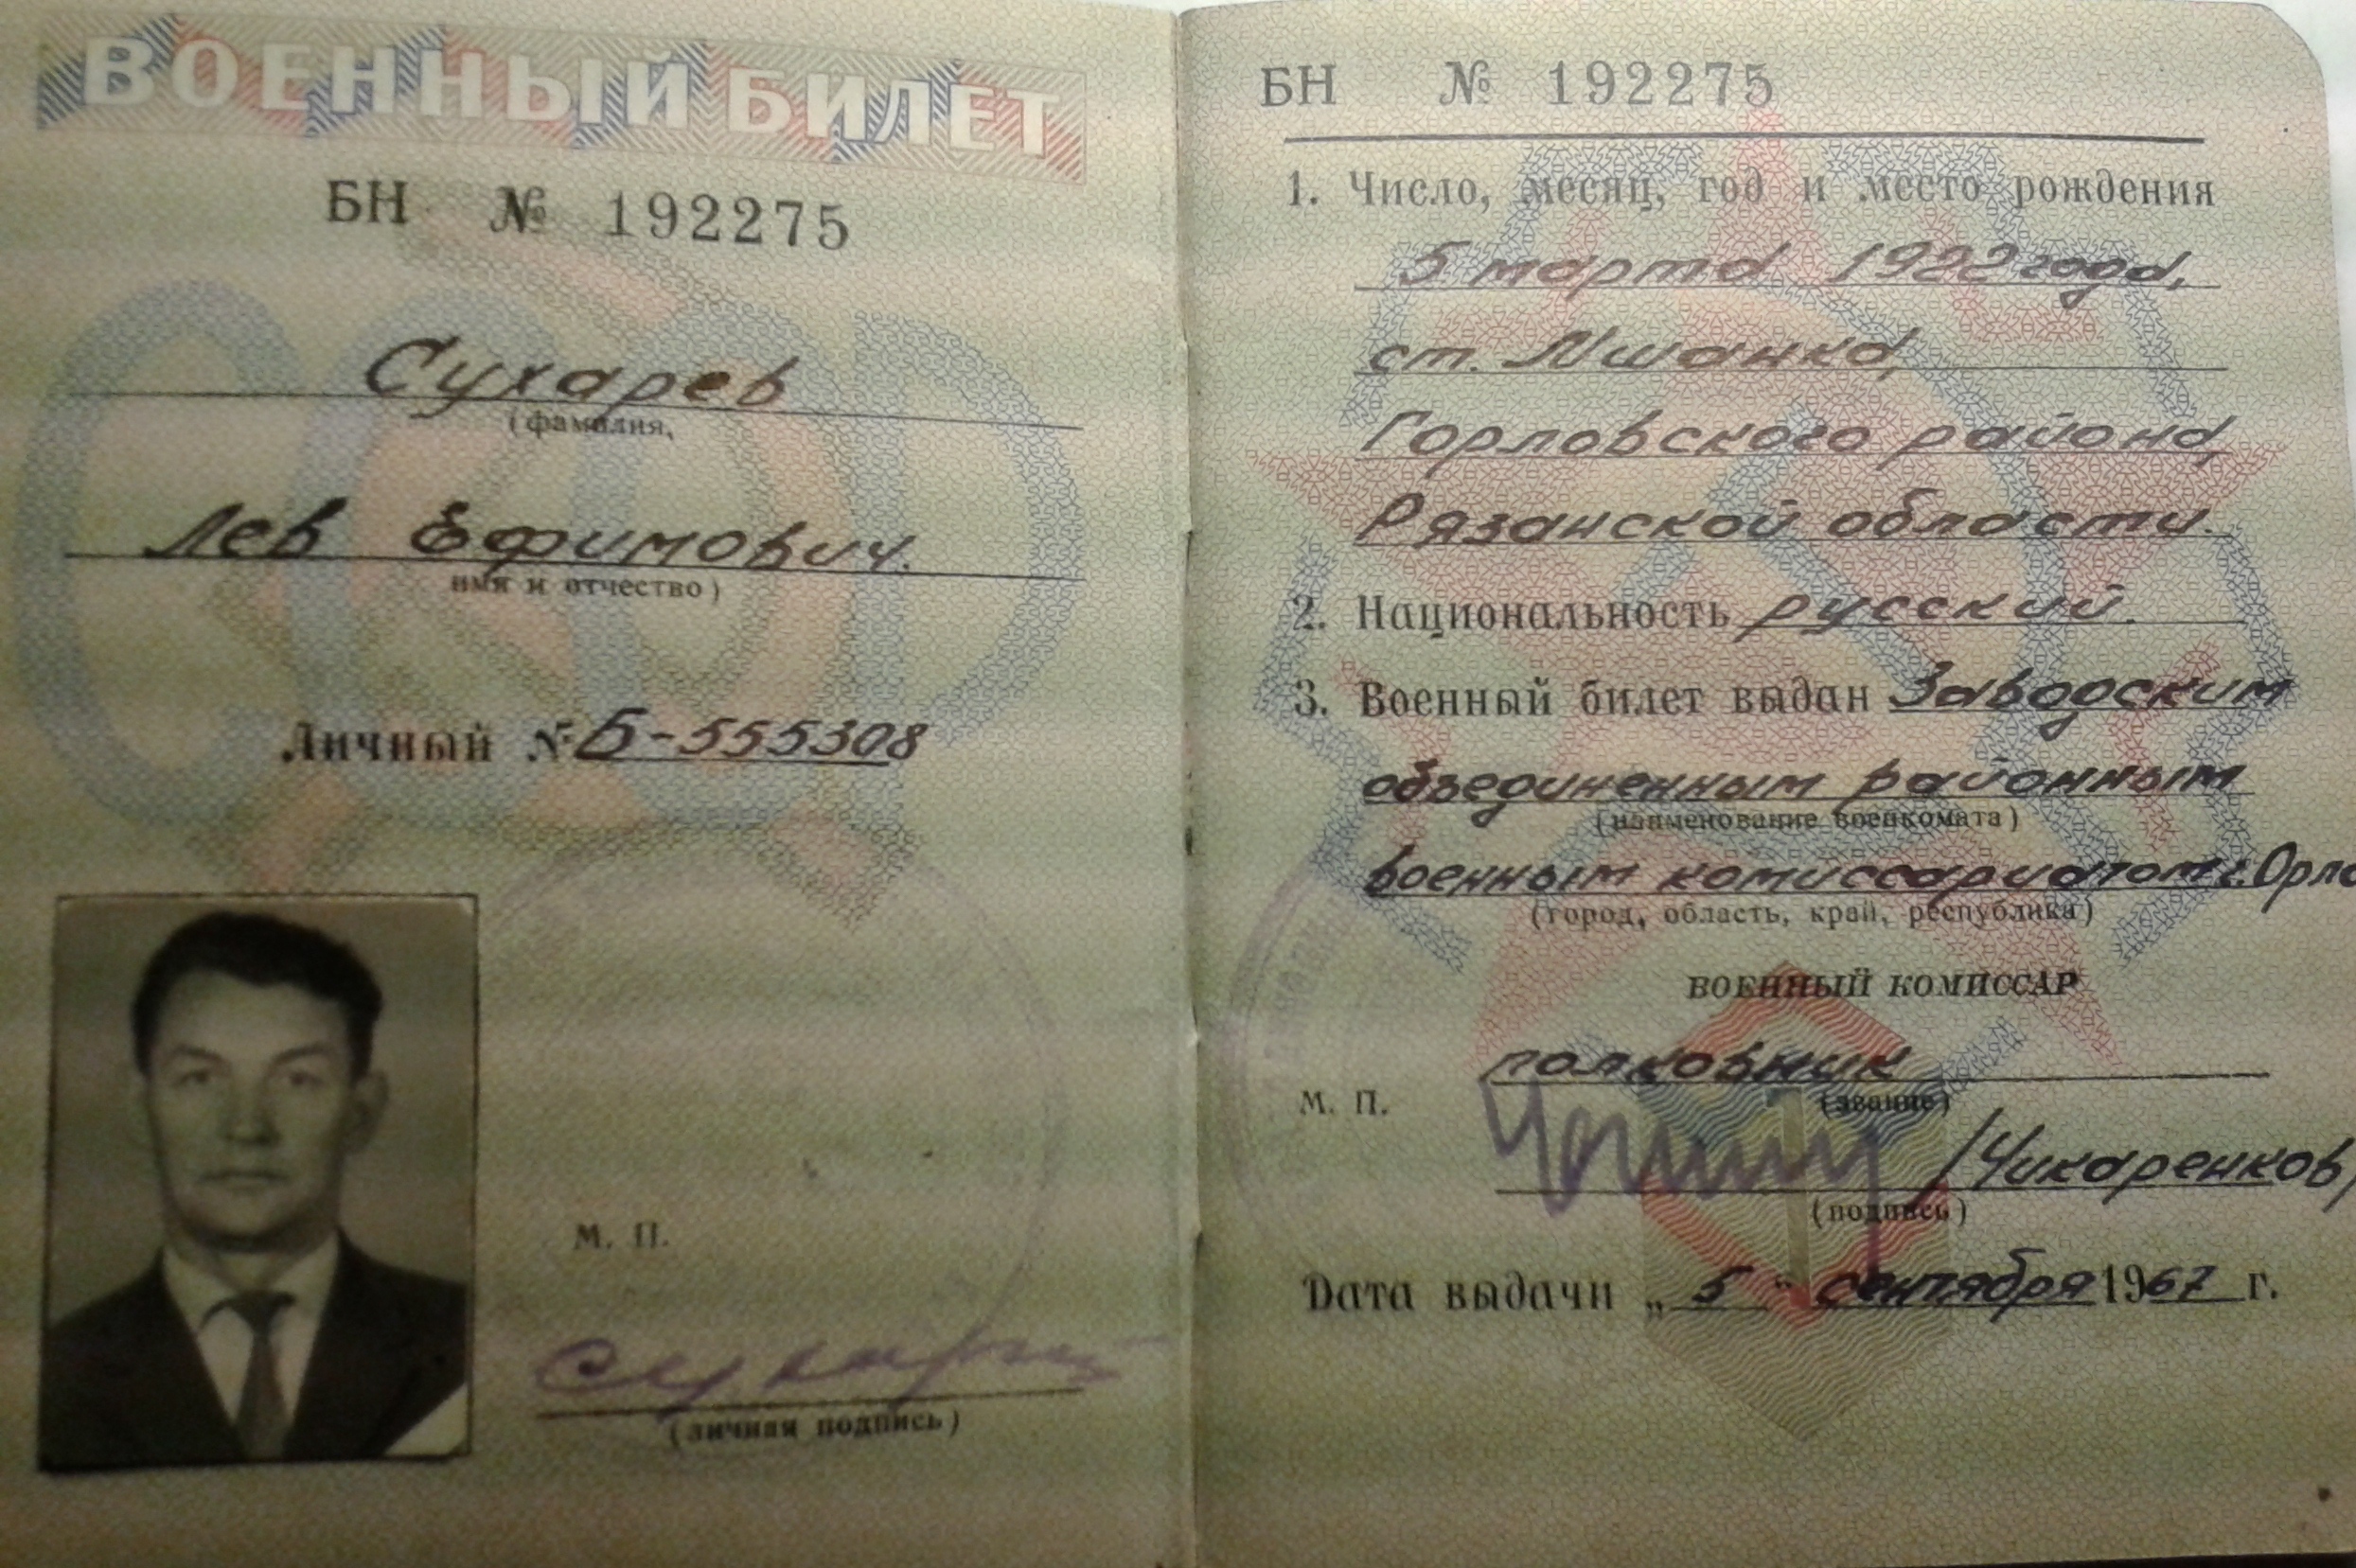 ВОЕННЫЙ БИЛЕТ
БН № 192275
Сухарев
(фамилия,
Лев Ефимович.
имя и отчество)
Личный № Б-555308
М. П.
(личная подпись)
БН № 192275
1. Число, месяц, год и место рождения
5 марта 1922 года,
ст. Мшанка,
Горловского района,
Рязанской области.
2. Национальность русский.
3. Военный билет выдан Заводским
объединенным районным
(наименование военкомата)
военным комиссариатом г. Орла
(город, область, край, республика)
ВОЕННЫЙ КОМИССАР
полковник
(звание)
М. П.
/Чикаренков/
(подпись)
Дата выдачи „ 5 " сентября 1967 г.